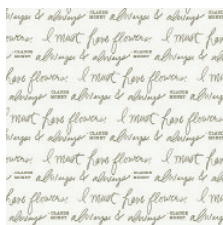 always & always CLAUDE MONET always & always
flowers. I must have flowers.
CLAUDE MONET always & always CLAUDE MONET
have flowers. I must have flowers.
always & always CLAUDE MONET always & always
must have flowers. I must have
always & always CLAUDE MONET always & always CLAUDE MONET
flowers. I must have flowers.
CLAUDE MONET always & always CLAUDE MONET
have flowers. I must have flowers.
always & always CLAUDE MONET always & always